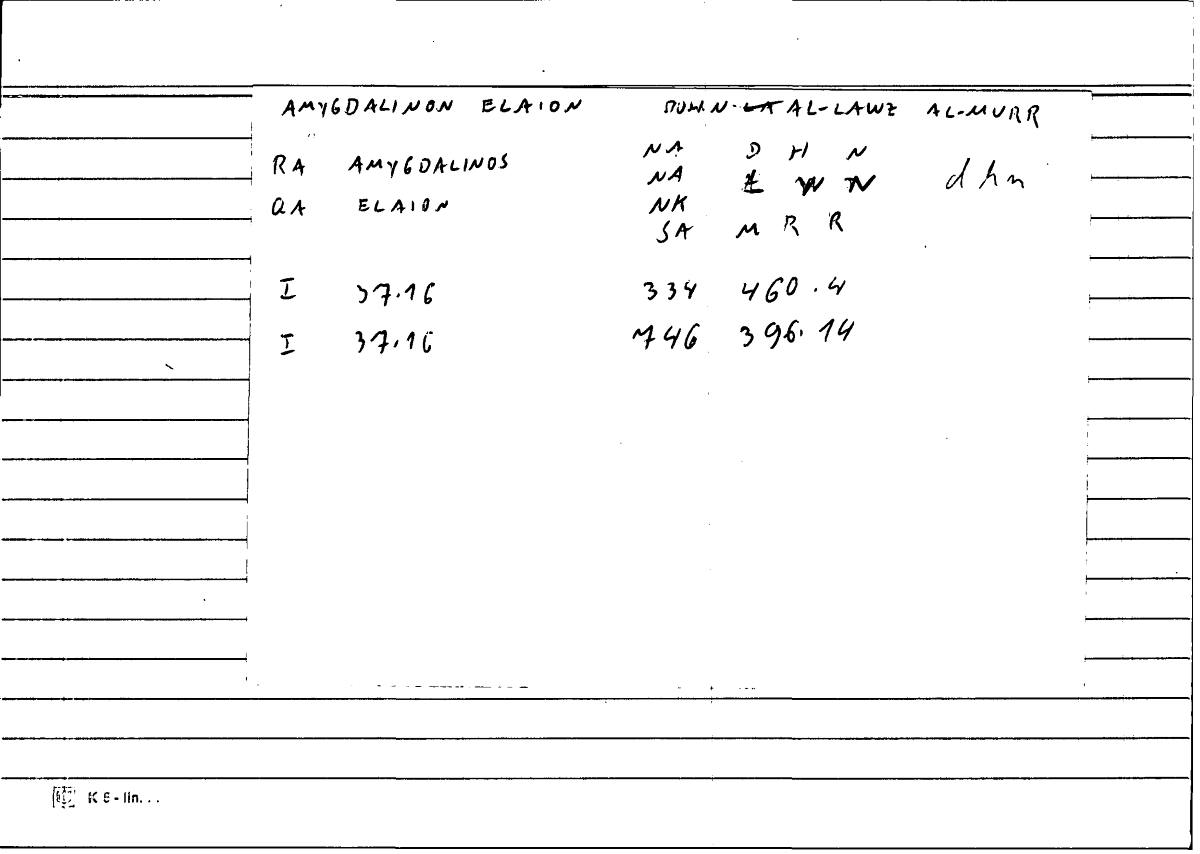 AMYGDALINON ELAION DUHN LA AL-LAWZ AL-MURR
RA AMYGDALINOS NA D H N
NA L W N dhn
QA ELAION NK
SA M R R
I 37.16 334 460.4
I 37.16 746 396.14
K 6 - lin...